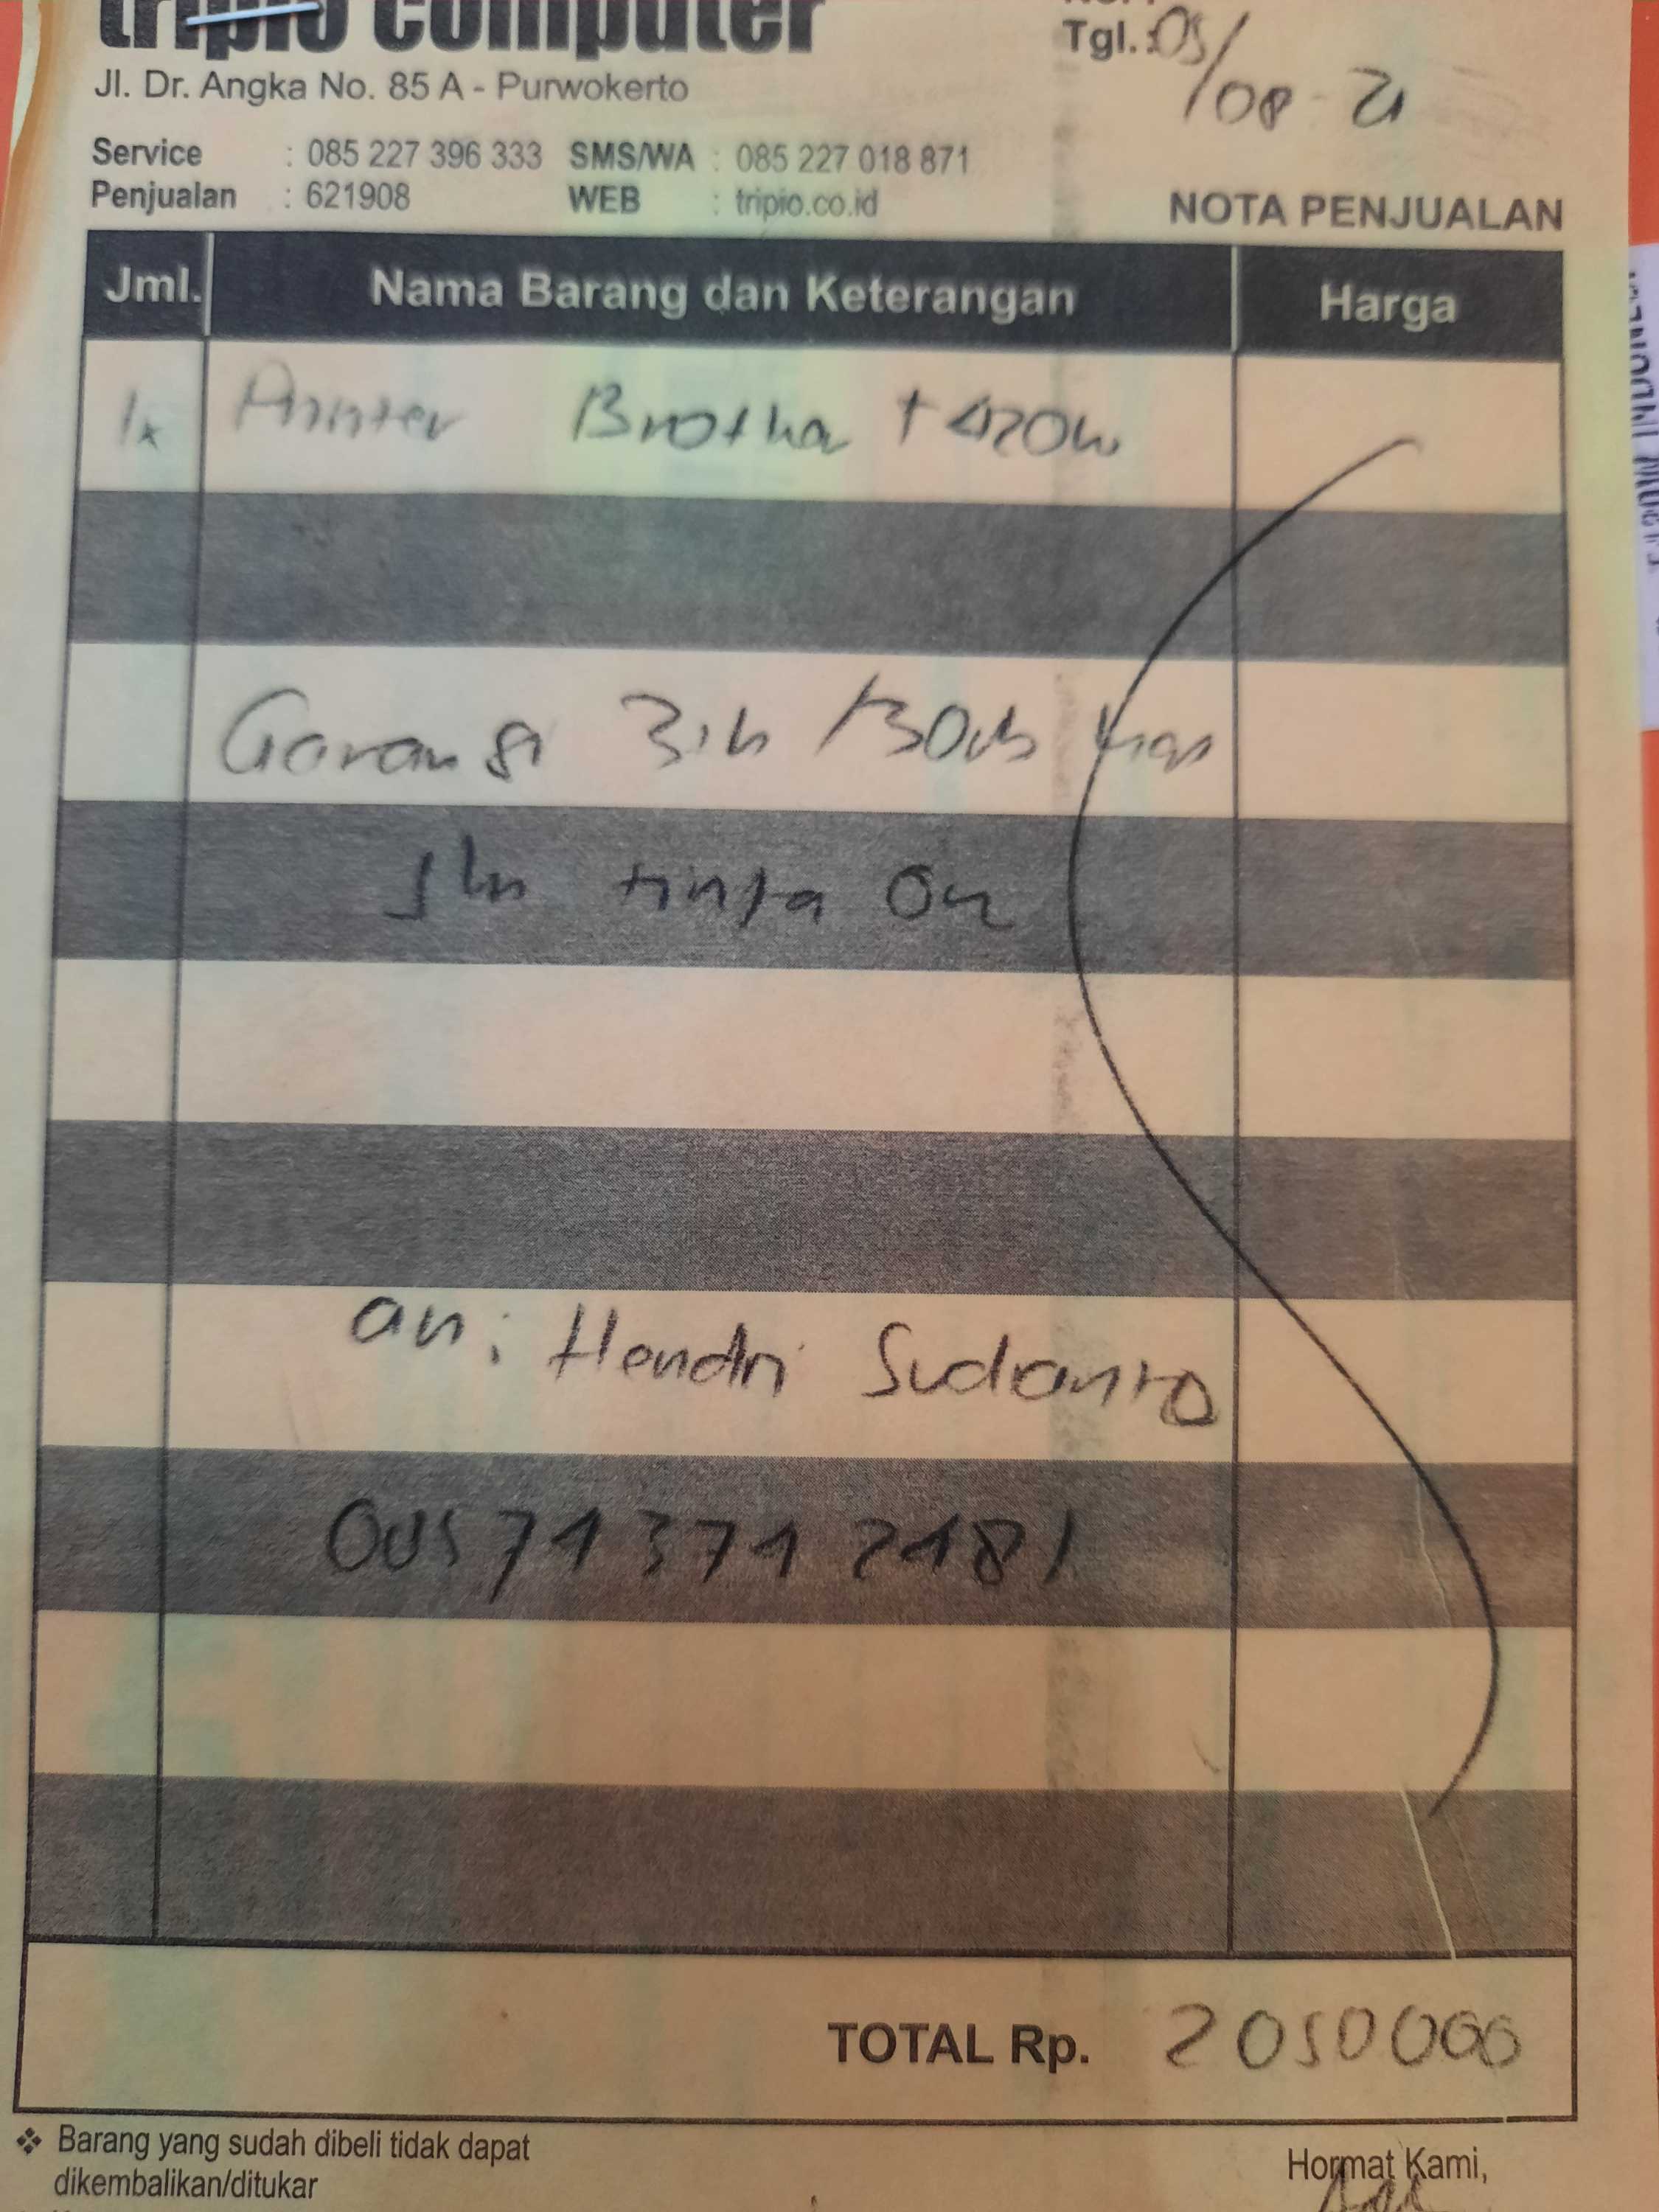 tripio computer
Tgl. : 05/08-21
Jl. Dr. Angka No. 85 A - Purwokerto
Service : 085 227 396 333 SMS/WA : 085 227 018 871
Penjualan : 621908 WEB : tripio.co.id
NOTA PENJUALAN
Jml. Nama Barang dan Keterangan Harga
1x Printer Brother T420W
Garansi 3th /30rb
tinta Ori
an : Hendri Sudianto
TOTAL Rp. 2050000
❖ Barang yang sudah dibeli tidak dapat
dikembalikan/ditukar
Hormat Kami,